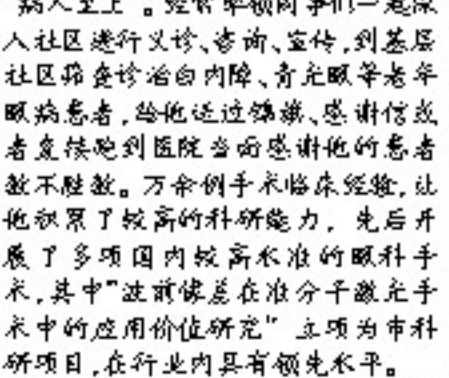 病人至上”。经常率领同事们一起深
入社区进行义诊、咨询、宣传,到基层
社区筛查诊治白内障、青光眼等老年
眼病患者,给他送过锦旗、感谢信或
者直接跑到医院当面感谢他的患者
数不胜数。万余例手术临床经验,让
他积累了较高的科研能力, 先后开
展了多项国内较高水准的眼科手
术,其中“波前像差在准分子激光手
术中的应用价值研究” 立项为市科
研项目,在行业内具有领先水平。